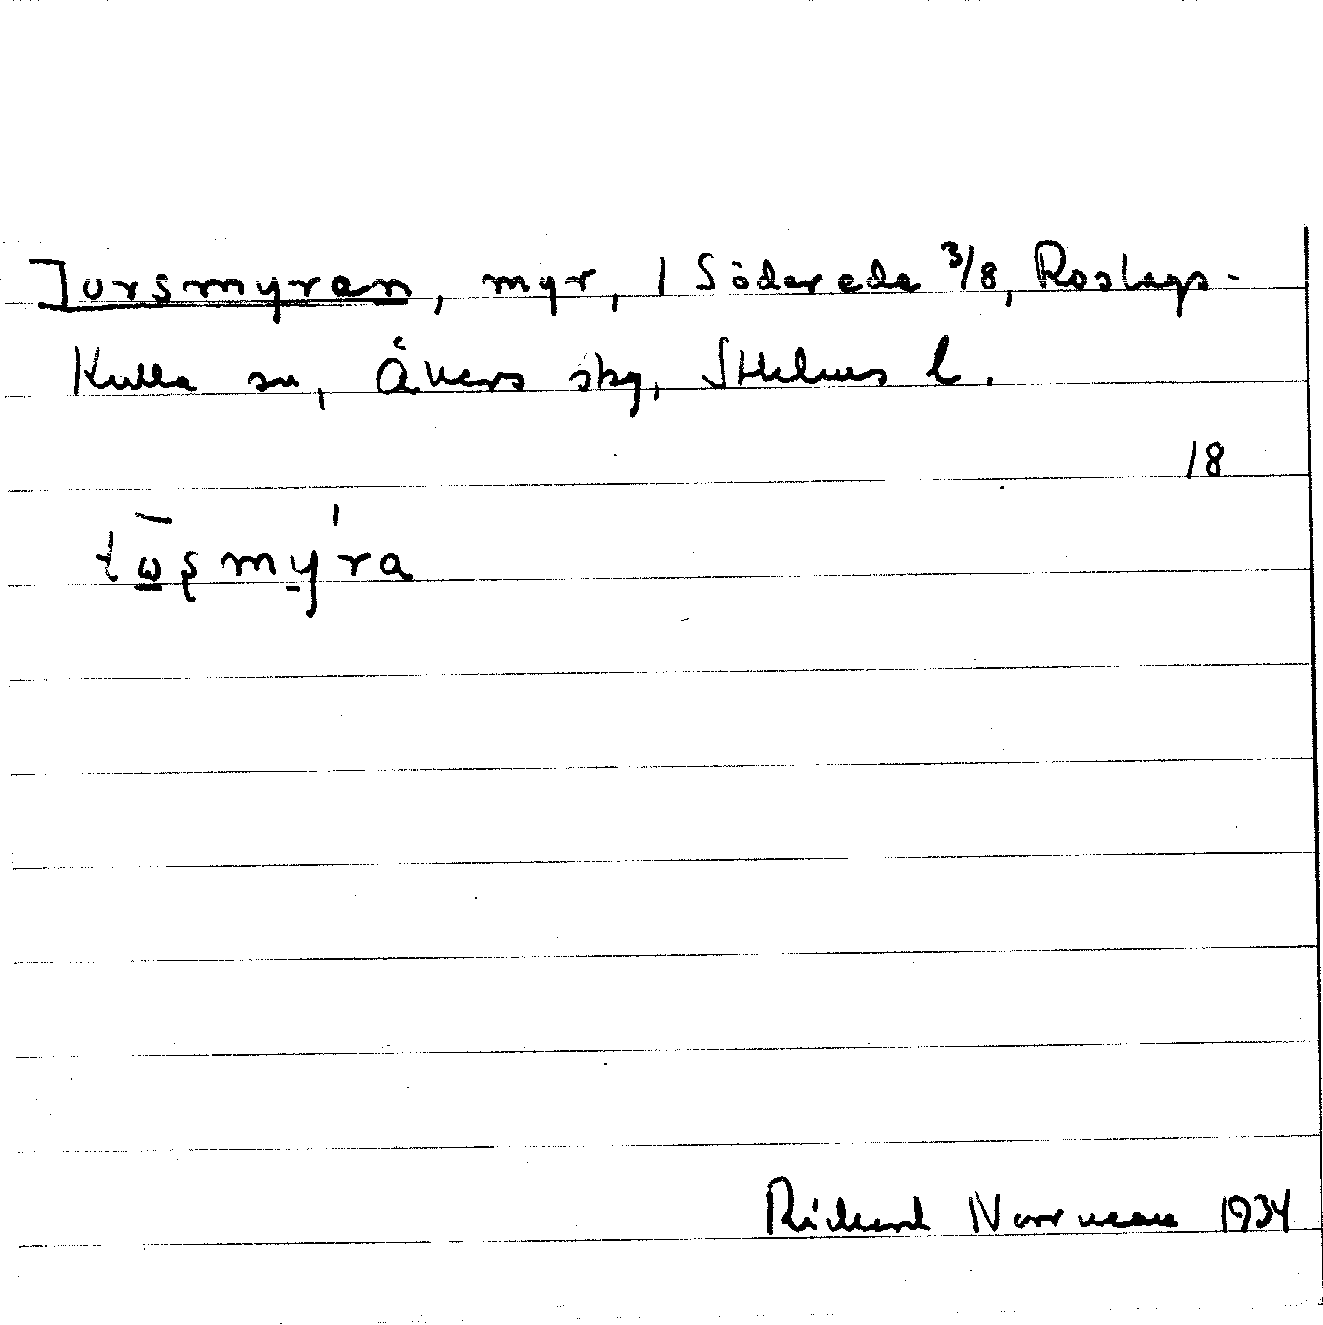 Torsmyran, myr, 1 Söderede 3/8, Roslags-
Kulla sn, Åkers skg, Sthlms l.
18
tω̄ṣmy̱'ra
Richard Norrman 1934